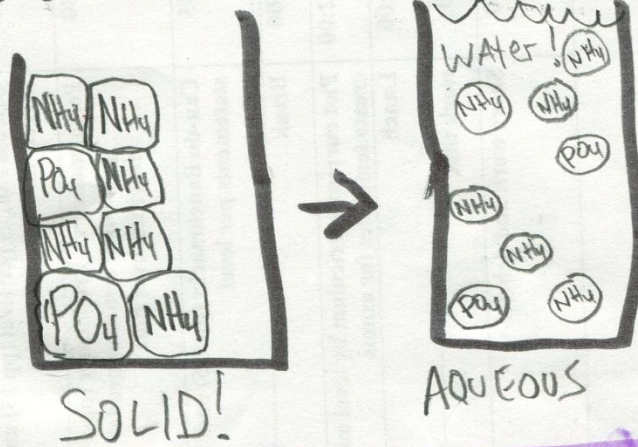 NH4 NH4
PO4 NH4
NH4 NH4
PO4 NH4
SOLID!
Water!
NH4
NH4 NH4
PO4
NH4
NH4
PO4 NH4
AQUEOUS